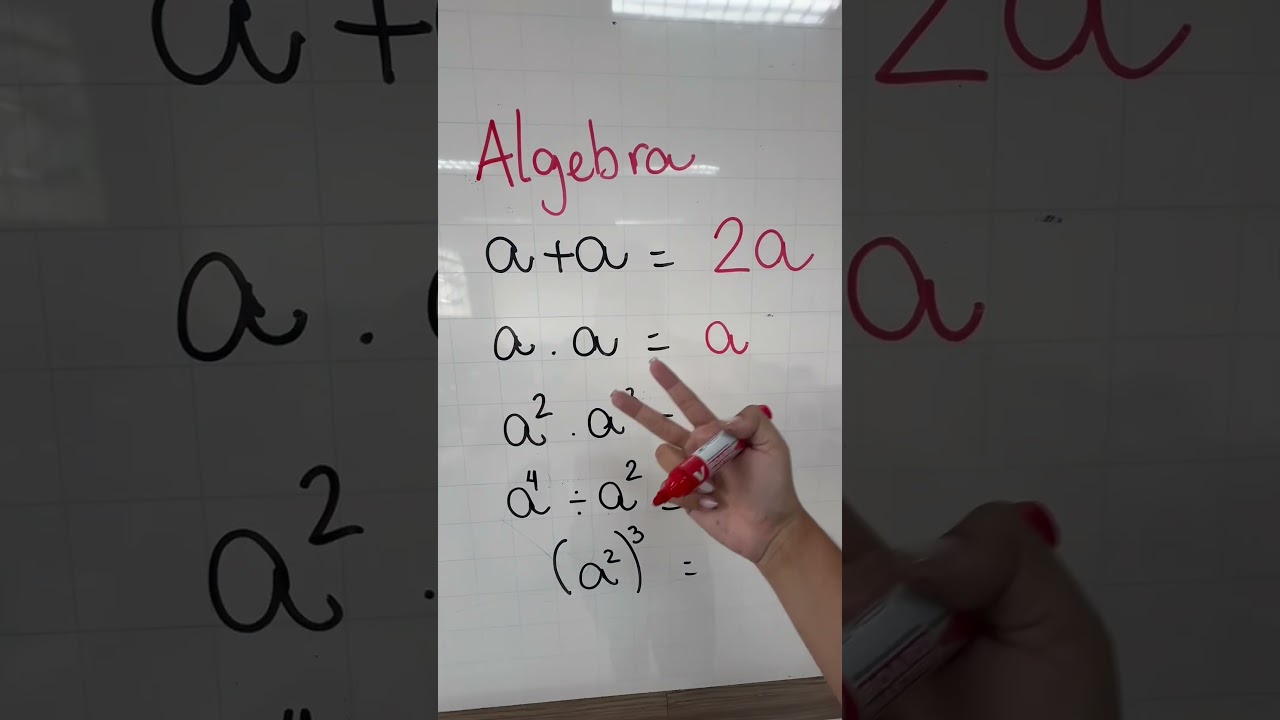 Algebra
a+a = 2a
a . a = a
a² . a² =
a⁴ ÷ a² =
(a²)³ =